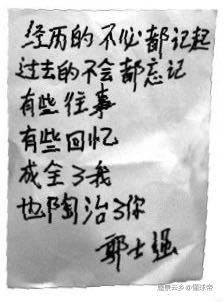 经历的不必都记起
过去的不会都忘记
有些往事
有些回忆
成全了我
也陶冶了你
郭士强
搜狐云乡@懂球帝